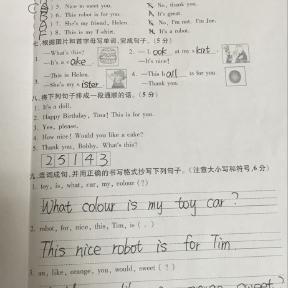 5. Nice to meet you. No, thank you.
6. This robot is for you. It's great.
7. She's my friend, Helen. No, I'm not. I'm Joe.
8. This is my T-shirt. It's a robot.
七.根据图片和首字母写单词,完成句子。(5分)
1. —What's this? 2. —Look at my skirt.
—It's a cake —It's nice!
3. —This is Helen. 4. —This ball is for you.
—She's my sister. —Thank you.
八.将下列句子排成一段通顺的话。(5分)
1. It's a doll.
2. Happy Birthday, Tina! This is for you.
3. Yes, please.
4. How nice! Would you like a cake?
5. Thank you, Bobby. What's this?
25143
九.连词成句,并用正确的书写格式抄写下列句子。(注意大小写和符号,6分)
1. toy, is, what, car, my, colour (?)
What colour is my toy car?
2. robot, for, nice, this, Tim, is (.)
This nice robot is for Tim
3. an, like, orange, you, would, sweet (?)